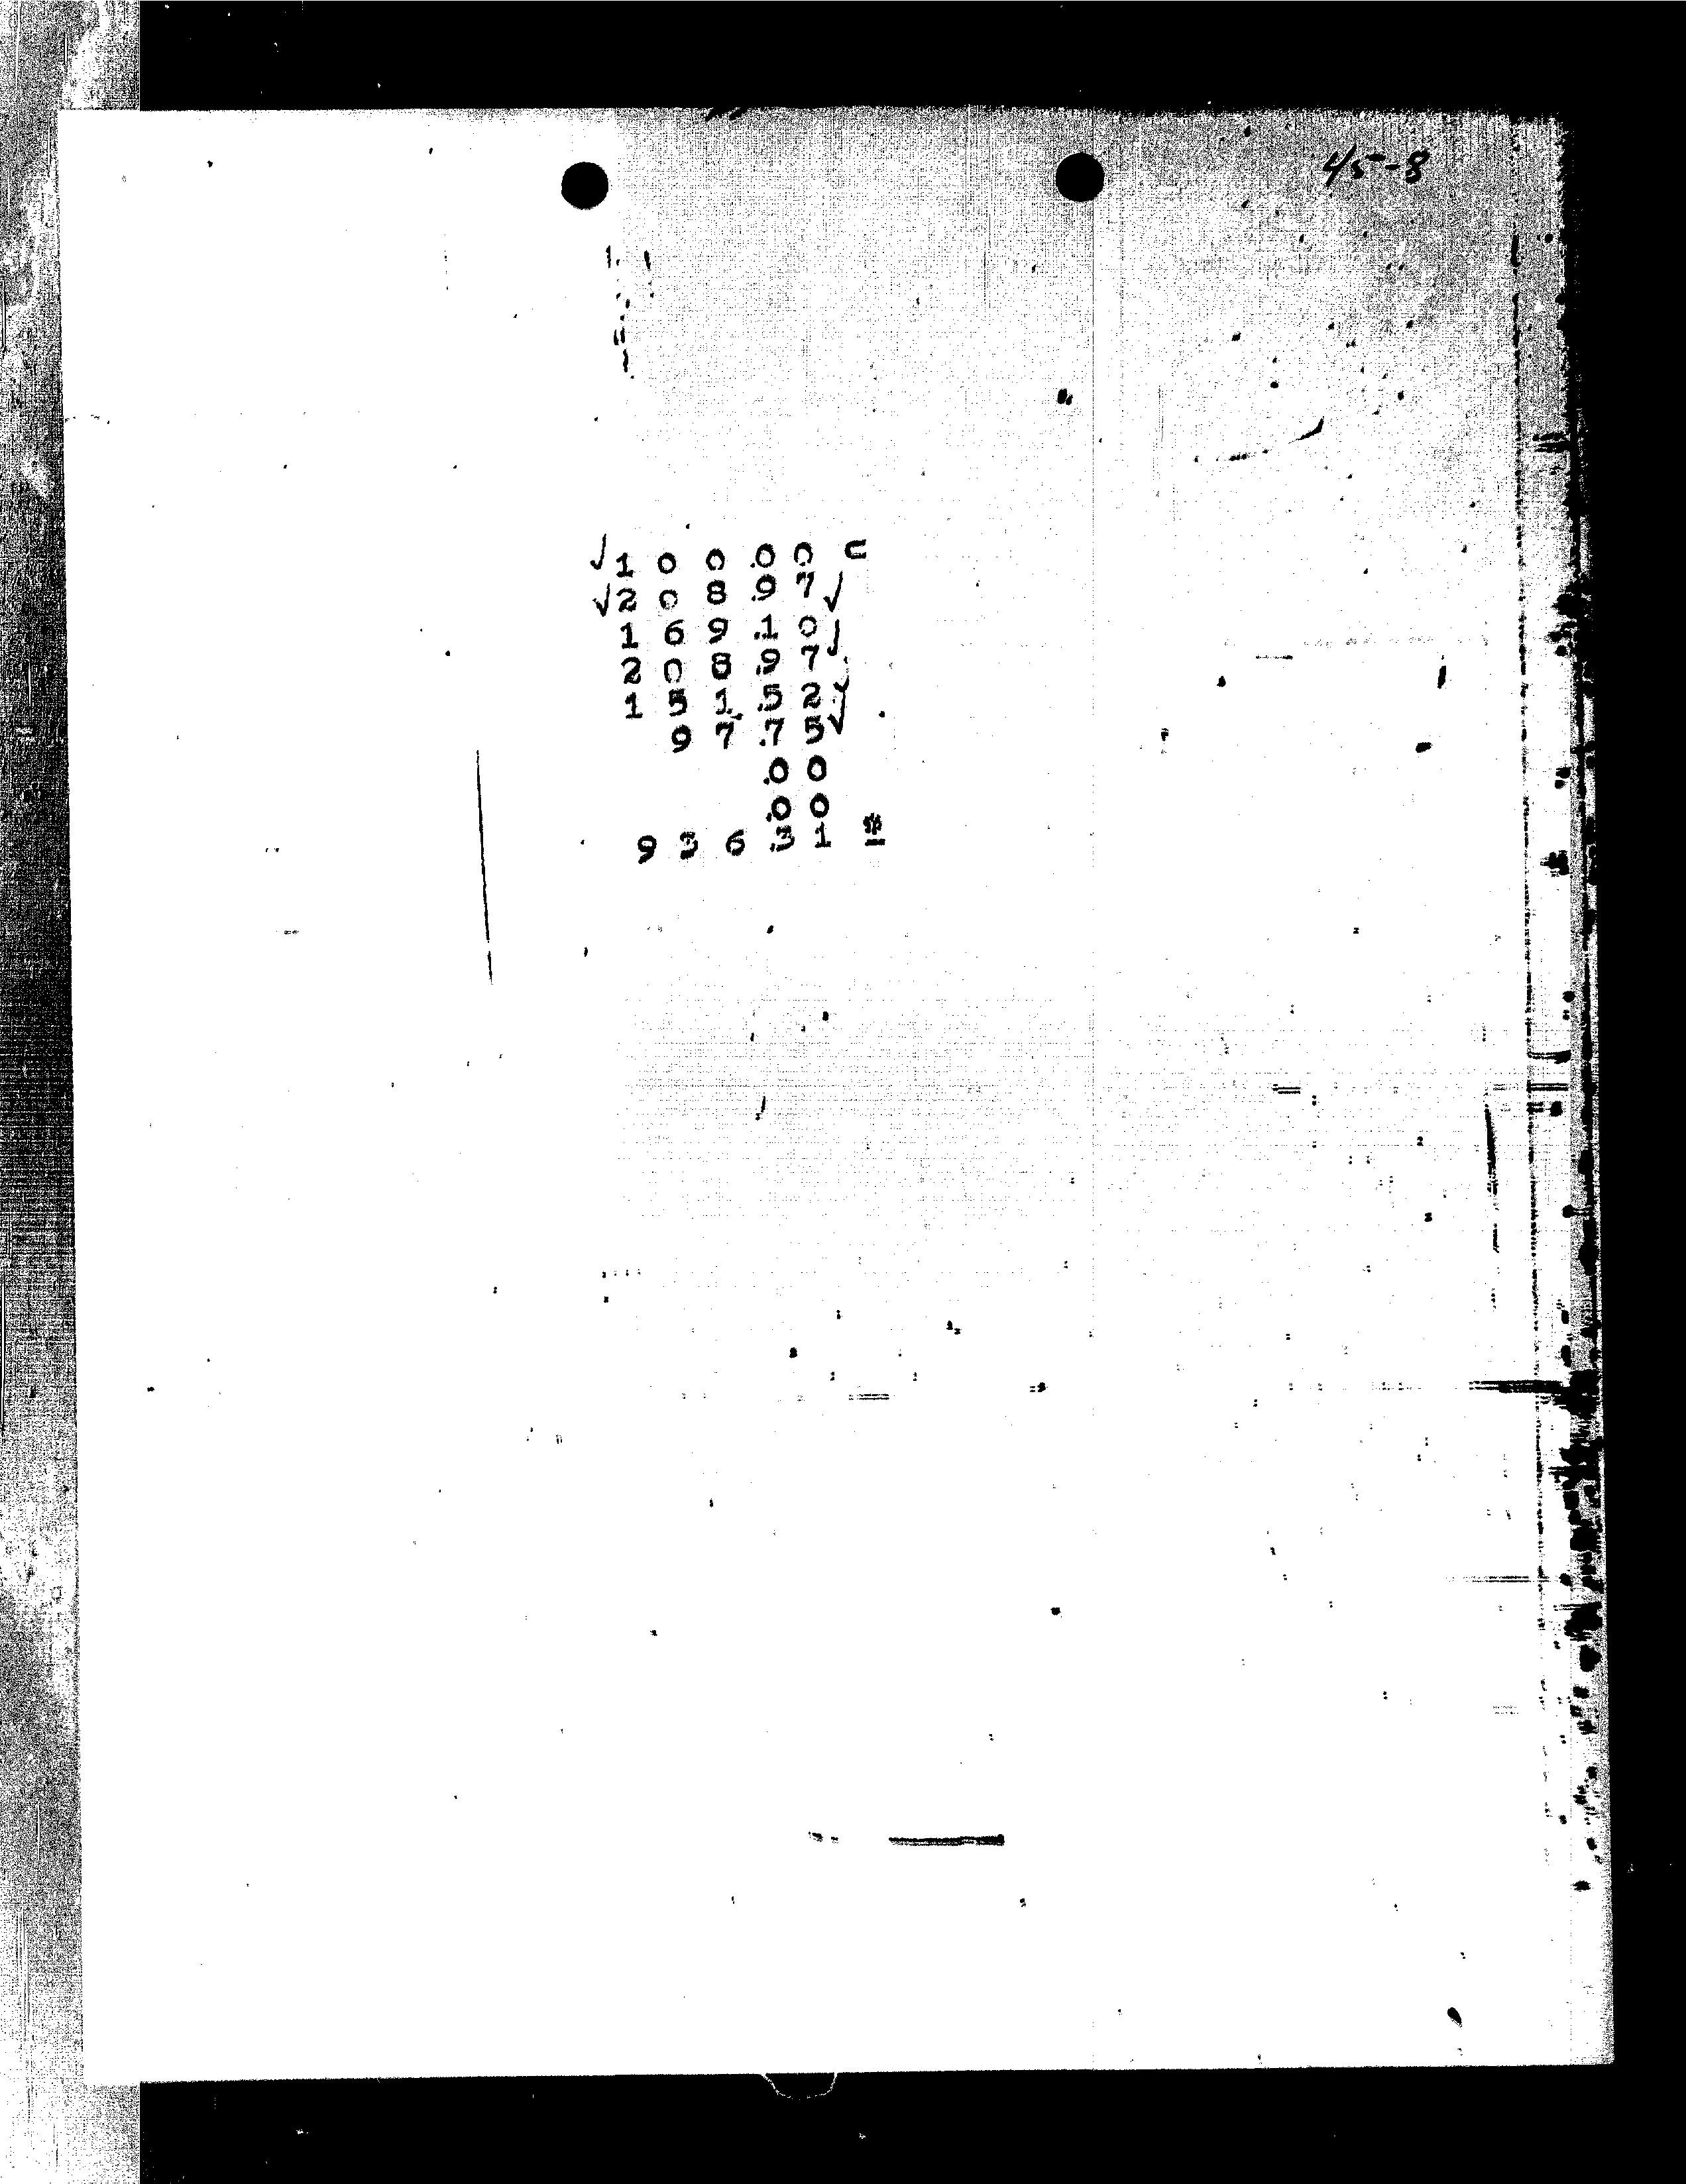 45-8
✓100.00 C
✓208.97✓
169.10✓
208.97✓
151.52✓
97.75✓
.00
.00
936.31 *